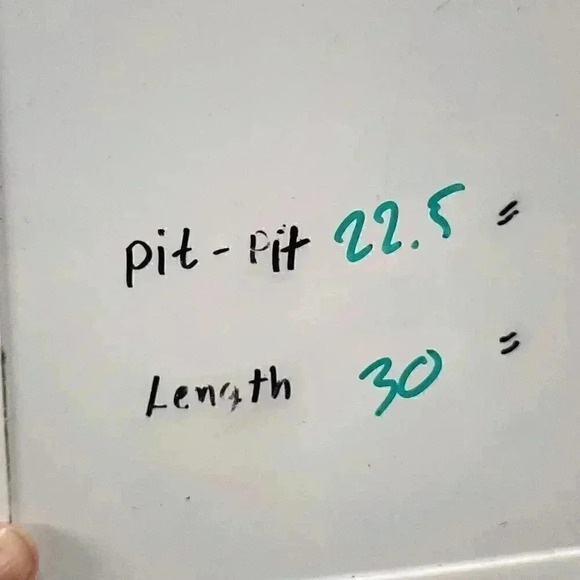 pit - pit 22.5 "
Length 30 "